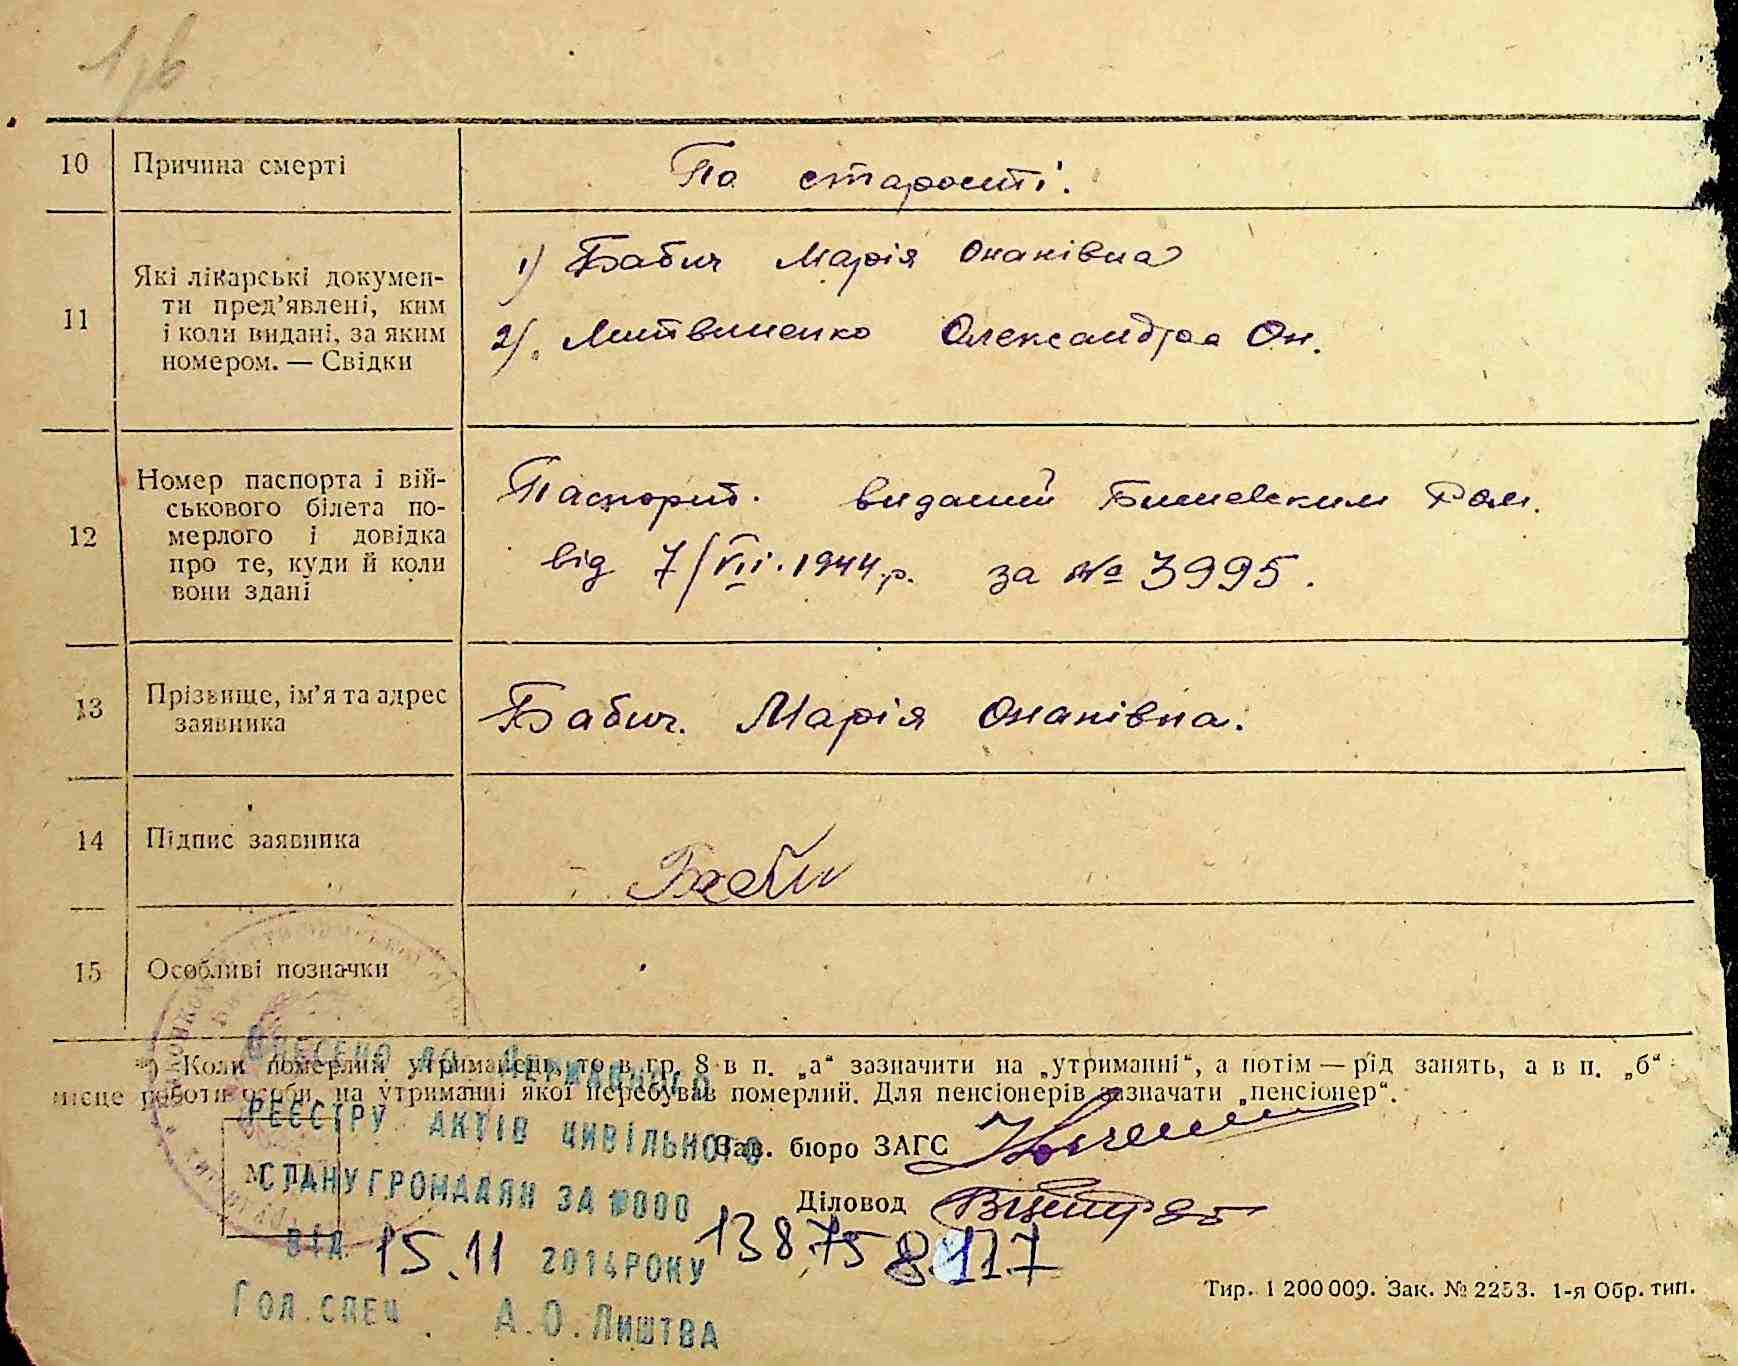 10 Причина смерті По старості.
11 Які лікарські докумен-
ти пред'явлені, ким
і коли видані, за яким
номером. — Свідки
1) Бабич Марія Онанівна
2). Литвиненко Олександра Он.
12 Номер паспорта і вій-
ськового білета по-
мерлого і довідка
про те, куди й коли
вони здані
Паспорт. виданий
від 7/VII.1944 р. за № 3995.
13 Прізвище, ім'я та адрес
заявника
Бабич. Марія Онанівна.
14 Підпис заявника
15 Особливі позначки
*) Коли померлий утриманець, то в гр. 8 в п. „а“ зазначити на „утриманні“, а потім — рід занять, а в п. „б“
місце роботи особи, на утриманні якої перебував померлий. Для пенсіонерів зазначати „пенсіонер“.
Зав. бюро ЗАГС
Діловод
М. П.
ВНЕСЕНО ДО ДЕРЖАВНОГО
РЕЄСТРУ АКТІВ ЦИВІЛЬНОГО
СТАНУ ГРОМАДЯН ЗА №000
ВІД 15.11 2014РОКУ
ГОЛ.СПЕЦ. А.О.ЛИШТВА
Тир. 1 200 000. Зак. № 2253. 1-я Обр. тип.